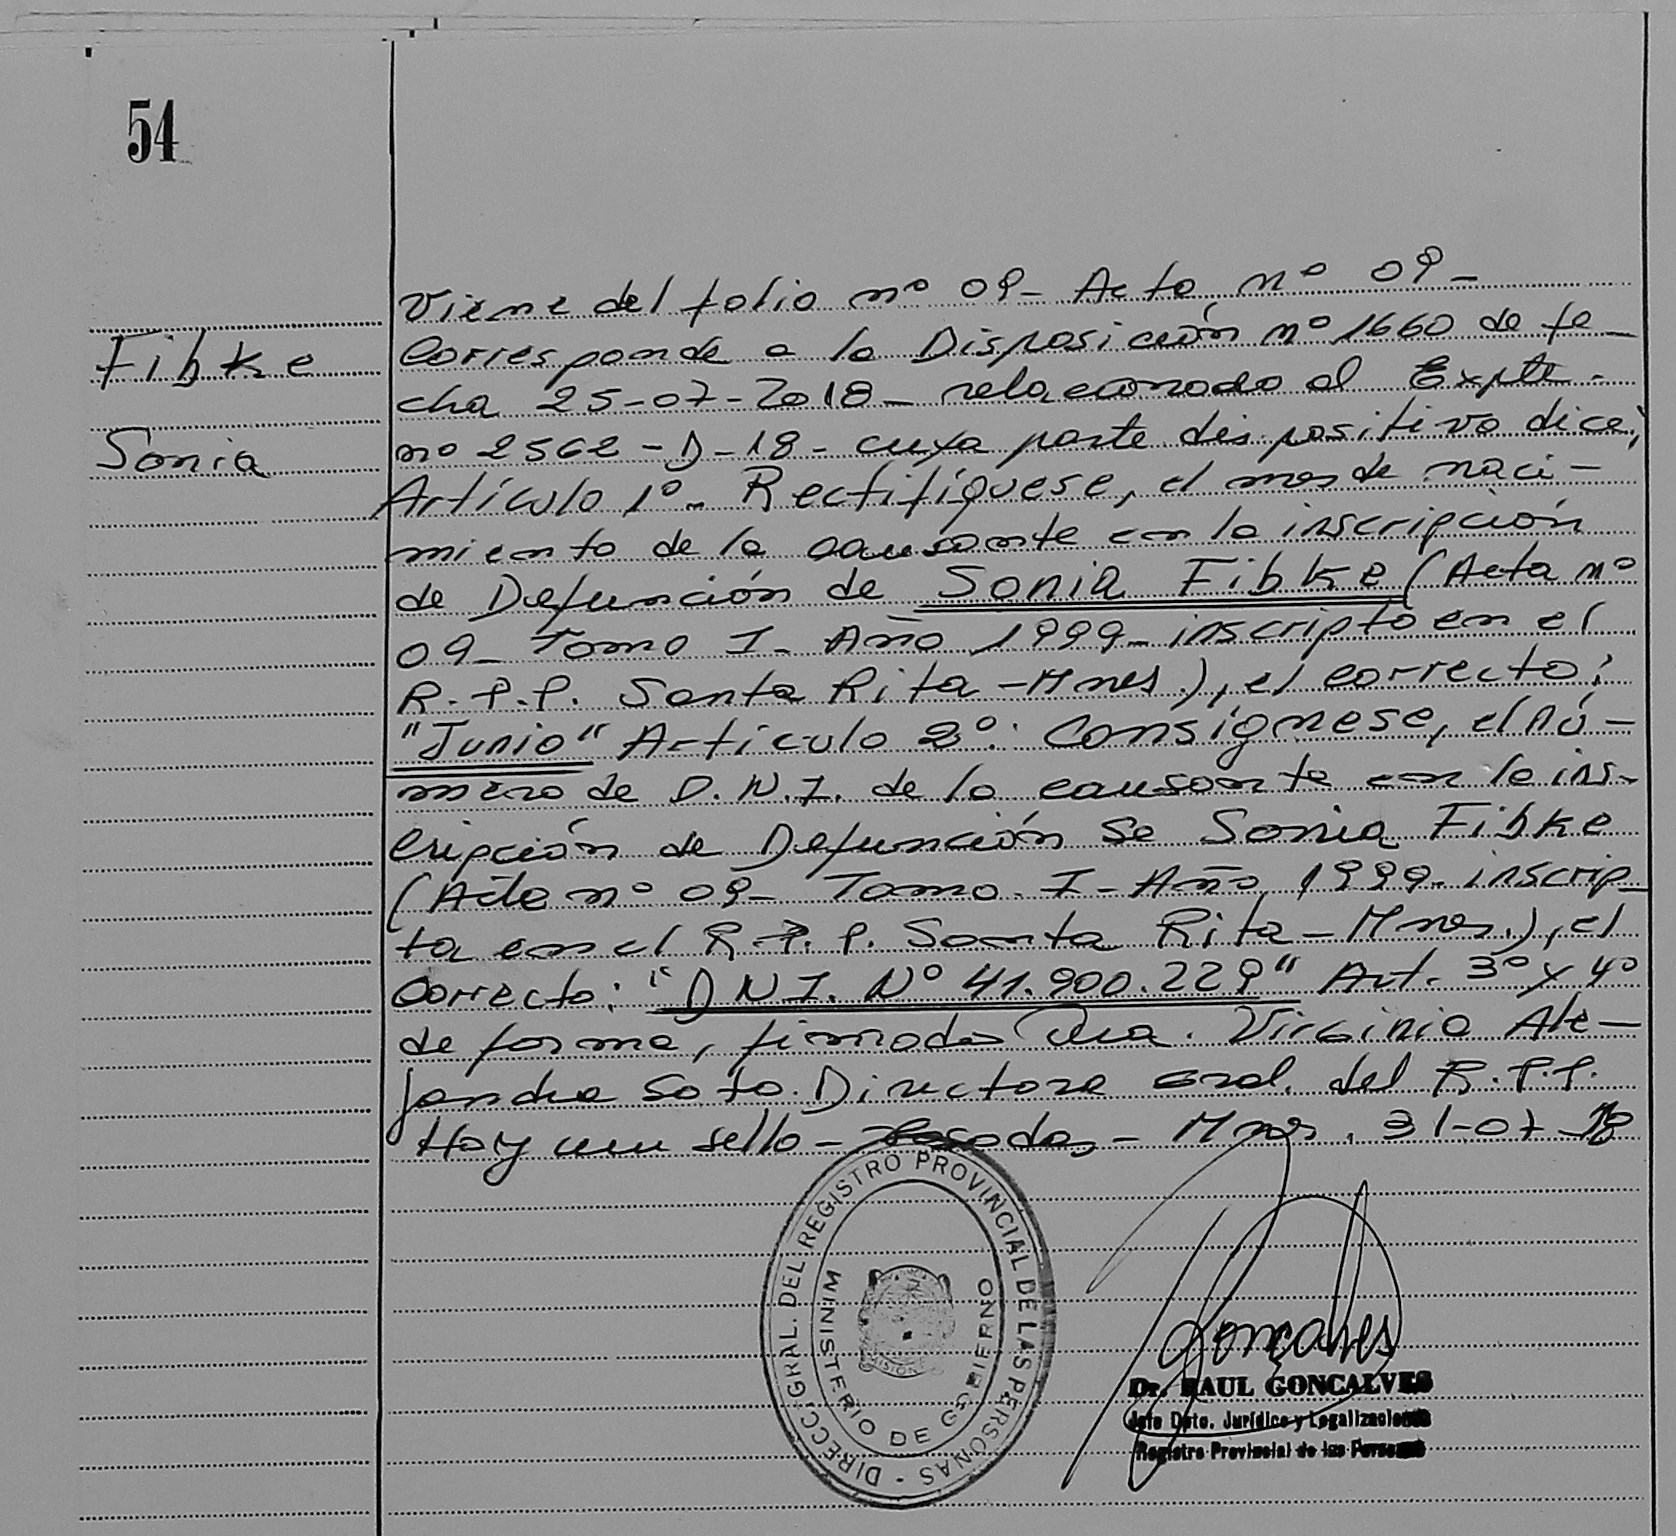 54
Fibke
Sonia
Viene del folio nº 09- Acta nº 09-
Corresponde a la Disposición nº 1660 de fe-
cha 25-07-2018- relacionado al Expte.
nº 2562-D-18- cuya parte dispositiva dice;
Artículo 1º- Rectifíquese, el mes de naci-
miento de la causante en la inscripción
de Defunción de Sonia Fibke (Acta nº
09- Tomo I- Año 1999- inscripto en el
R.P.P. Santa Rita-Mnes.), el correcto:
"Junio" Artículo 2º: Consígnese, el nú-
mero de D.N.I. de la causante en la ins-
cripción de Defunción Se Sonia Fibke
(Acta nº 09- Tomo I- Año 1999- inscrip-
ta en el R.P.P. Santa Rita-Mnes.), el
Correcto: "DNI. Nº 41.900.229" Art. 3º y 4º
de forma, firmado Dra. Virginia Ale-
jandra Soto. Directora Gral. del R.P.P.
Hay un sello- Posadas- Mnes. 31-07-18
DIRECC. GRAL. DEL REGISTRO PROVINCIAL DE LAS PERSONAS -
MINISTERIO DE GOBIERNO
MISIONES
Goncalves
Dr. RAUL GONCALVES
Jefe Dpto. Jurídico y Legalizaciones
Registro Provincial de las Personas